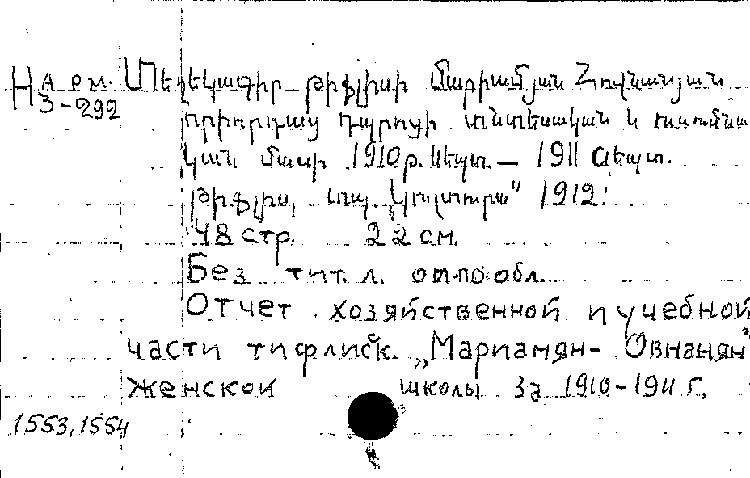 На арм.
3-292
Տեղեկագիր թիֆլիսի Մարիամյան Հովնանյան
օրիորդաց դպրոցի տնտեսական և ուսումնա
կան մասի 1910թ. սեպտ. — 1911 սեպտ.
Թիֆլիս, տպ. „Կուլտուրա" 1912.
48 стр. 22 см.
Без тит. л. оп. по обл.
Отчет хозяйственной и учебной
части тифлисск. „Мариамян-Овнанян"
женской школы за 1910-1911 г.
1553, 1554